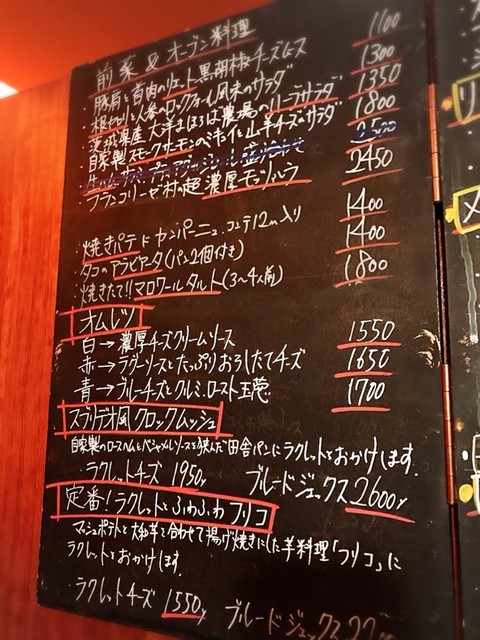 前菜&オーブン料理
・豚肩と首肉のリエット 黒胡椒チーズ 1100
・根セロリと人参のロックフォール風味のサラダ 1300
・茨城県産 大洋まほろば農場のリーフサラダ 1350
・自家製スモークサーモンのミキュイと山羊チーズのサラダ 1800
2500
・フランコリーゼ村の超濃厚モッツァ 2450
・焼きパテ ド カンパーニュ、コンテ12ヵ月入り 1400
・タコのアラビアータ(パン2個付き) 1400
・焼きたて!!マロワールタルト(3〜4人前) 1800
オムレツ
白→濃厚チーズクリームソース 1550
赤→ラグーソースとたっぷりおろしたてチーズ 1650
青→ブルーチーズとクルミ、ロースト玉葱 1700
スブリデオ風クロックムッシュ
自家製のロースハムとベシャメルソースを挟んだ田舎パンにラクレットをおかけします。
・ラクレットチーズ 1950y ブルードジェックス 2600y
定番!ラクレットとふわふわフリコ
マッシュポテトと大和芋を合わせて揚げ焼きにした芋料理「フリコ」に
ラクレットをおかけします。
・ラクレットチーズ 1550y ブルードジェックス